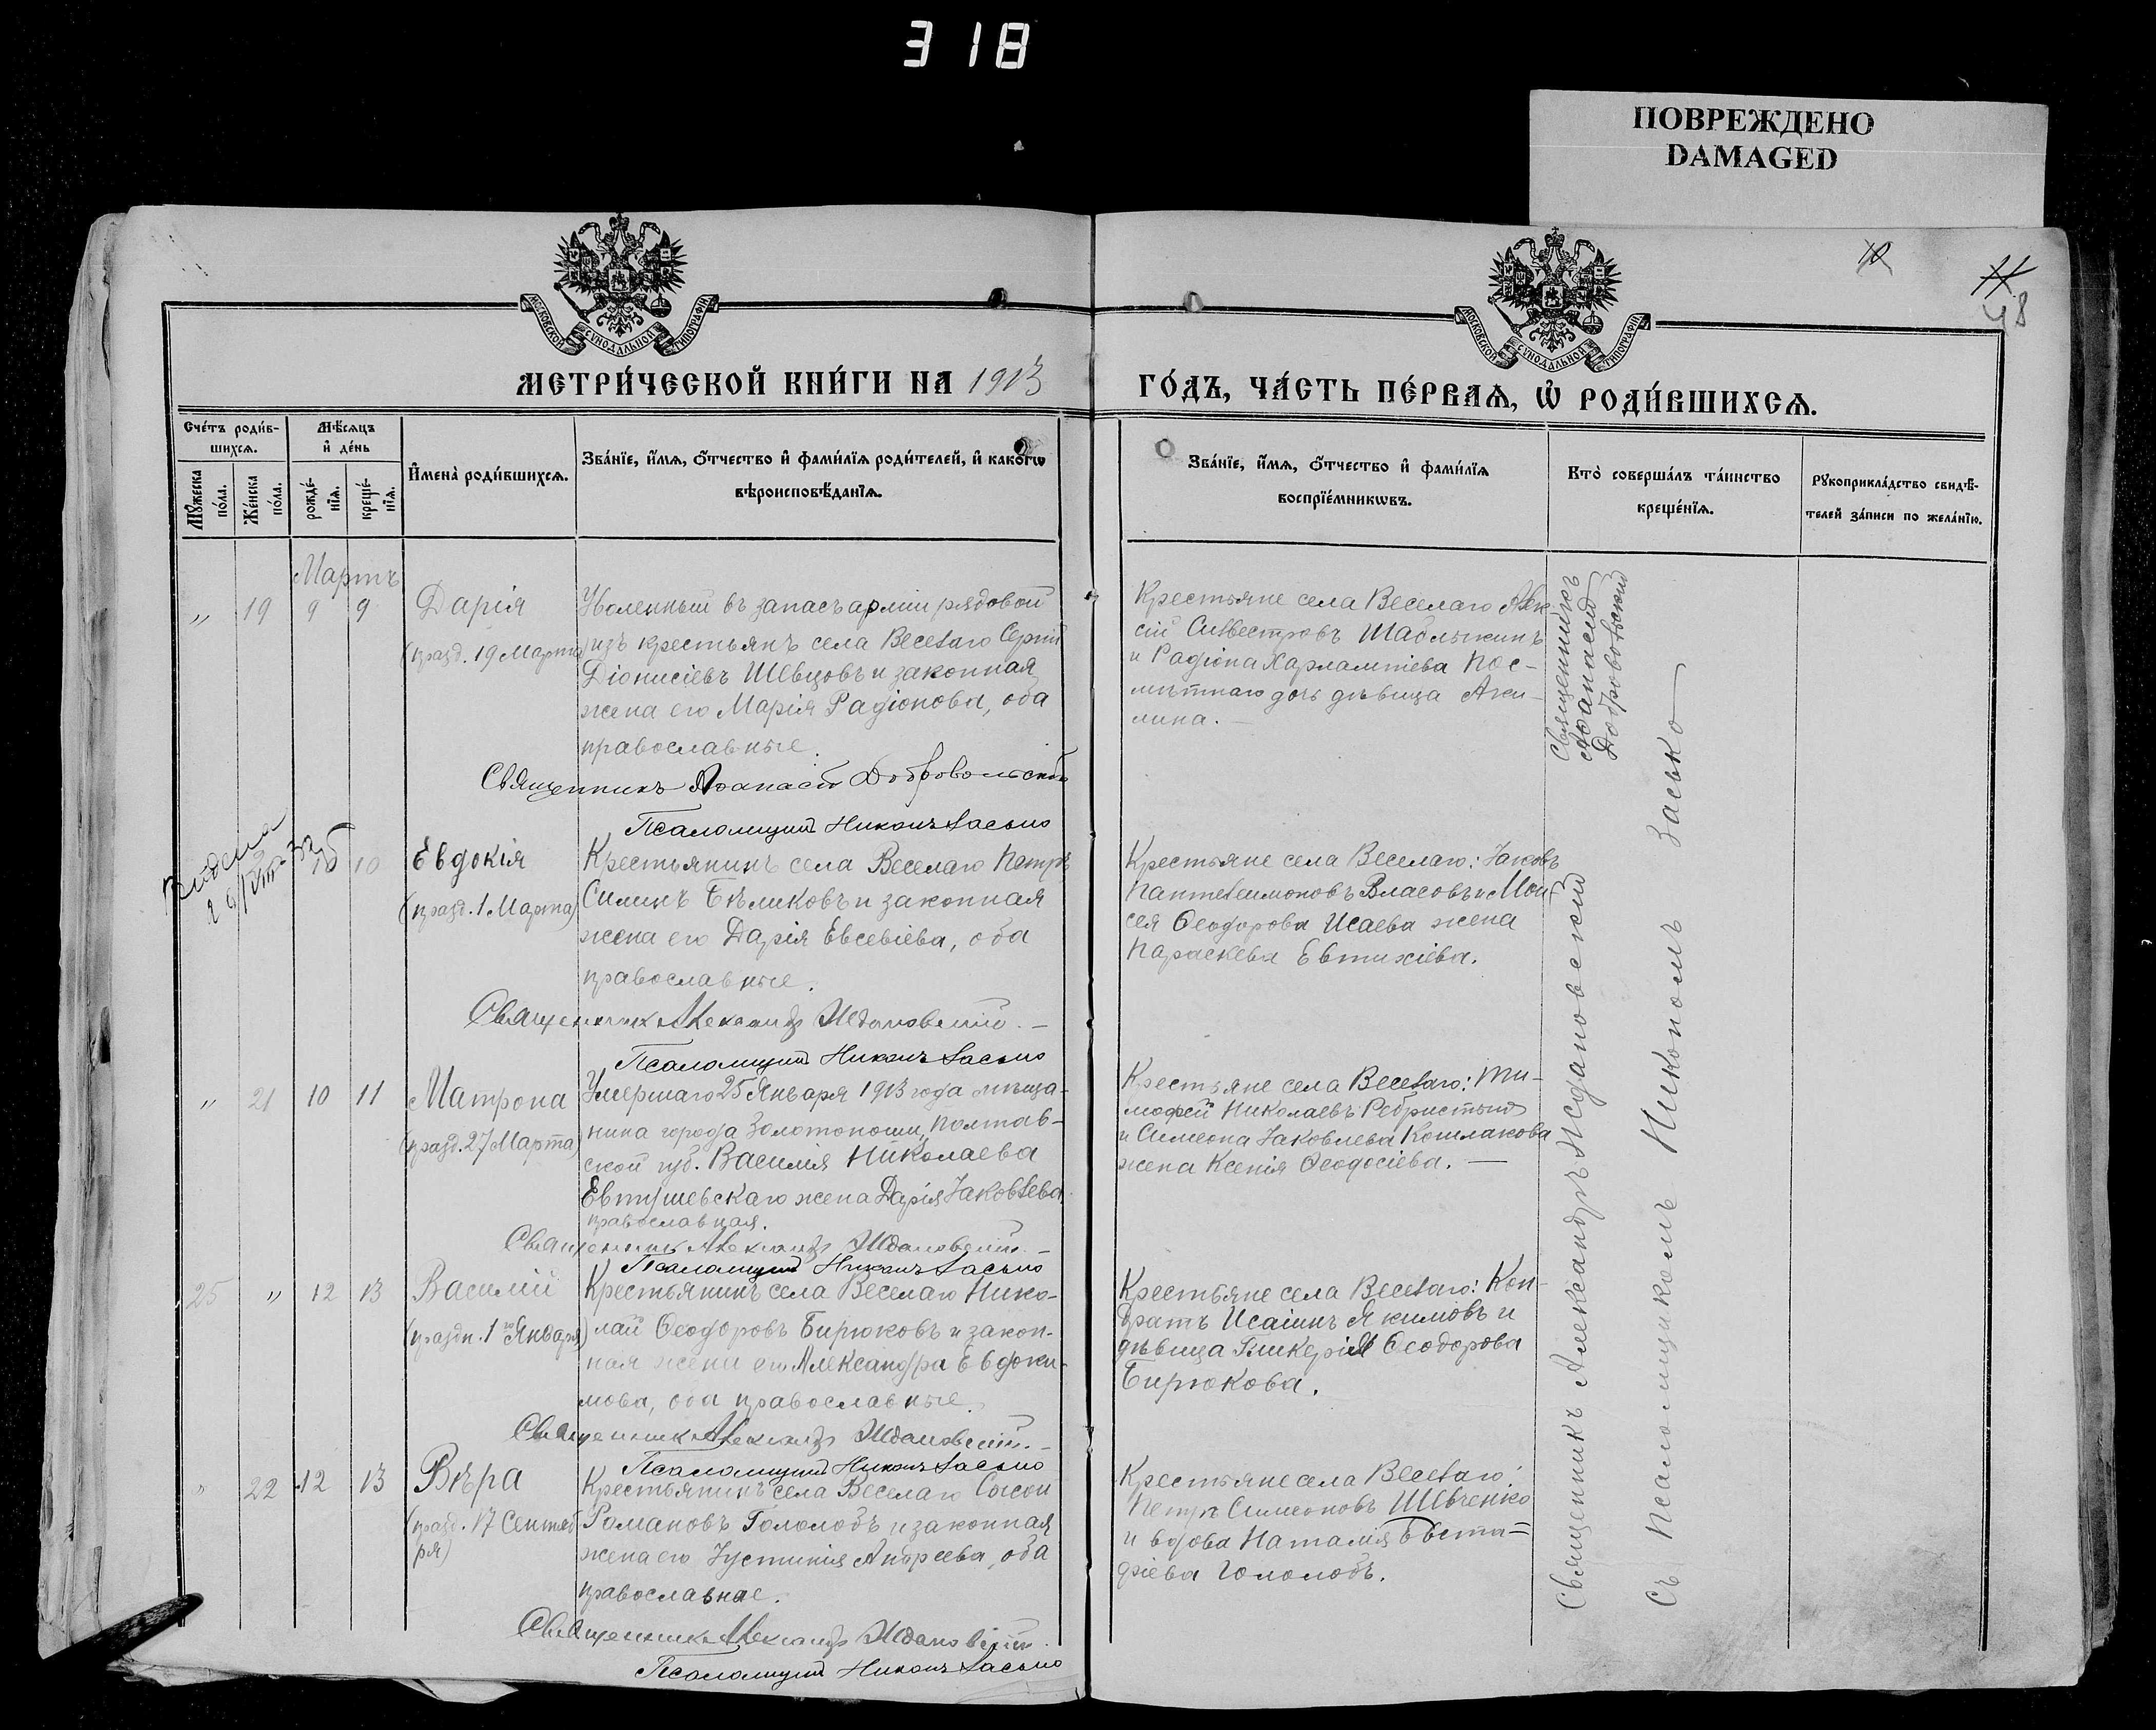 318
ПОВРЕЖДЕНО
DAMAGED
10
11
48
МОСКОВСКОЙ СѴНОДАЛЬНОЙ ТИПОГРАФІИ
МОСКОВСКОЙ СѴНОДАЛЬНОЙ ТИПОГРАФІИ
МЕТРИ́ЧЕСКОЙ КНИ́ГИ НА 1913
ГО́ДЪ, ЧА́СТЬ ПЕ́РВАѦ, Ѡ҆ РОДИ́ВШИХСѦ.
Сче́тъ роди́в-
шихсѧ.
Мѣ́сѧцъ
и҆ де́нь
Мꙋ́жеска по́ла.
Же́нска по́ла.
рожде́-
нїѧ.
креще́-
нїѧ.
И҆мена̀ роди́вшихсѧ.
Зва́нїе, и҆́мѧ, ѻ҆́тчество и҆ фами́лїѧ роди́телей, и҆ како́гѡ
вѣроисповѣ́данїѧ.
Зва́нїе, и҆́мѧ, ѻ҆́тчество и҆ фами́лїѧ
воспрїе́мникѡвъ.
Кто̀ соверша́лъ та́инство
креще́нїѧ.
Рꙋкоприкла́дство свидѣ́-
телей за́писи по жела́нїю.
Мартъ
" 19 9 9 Дарія
(празд. 19 Марта)
Уволенный въ запасъ арміи рядовой
изъ крестьянъ села Веселаго Сергій
Діонисіевъ Шевцовъ и законная
жена его Марія Радіонова, оба
православные.
Священникъ Аѳанасій Добровольскій
Псаломщикъ Никонъ Засько
Крестьяне села Веселаго Алек-
сій Силвестровъ Шаблыкинъ
и Радіона Харлампіева Пос-
мѣтнаго дочь дѣвица Аки-
лина. —
Священникъ
Аѳанасій
Добровольскій
10 Евдокія
(празд. 1 Марта)
Крестьянинъ села Веселаго Петръ
Силинъ Бѣликовъ и законная
жена его Дарія Евсевіева, оба
православные.
Священникъ Александръ Ждановскій. —
Псаломщикъ Никонъ Засько
Крестьяне села Веселаго: Іаковъ
Пантелеимоновъ Власовъ и Мои-
сея Ѳеодорова Исаева жена
Параскева Евтихіева.
" 21 10 11 Матрона
(празд. 27 Марта)
Умершаго 25 Января 1913 года мѣща-
нина города Золотоноши, Полтав-
ской губ. Василія Николаева
Евтушевскаго жена Дарія Іаковлева
православная.
Священникъ Александръ Ждановскій. —
Псаломщикъ Никонъ Засько
Крестьяне села Веселаго: Ти-
моѳей Николаевъ Ребристый
и Симеона Іаковлева Кошлакова
жена Ксенія Ѳеодосіева. —
25 " 12 13 Василій
(праздн. 1го Января)
Крестьянинъ села Веселаго Нико-
лай Ѳеодоровъ Бирюковъ и закон-
ная жена его Александра Евдоки-
мова, оба православные.
Священникъ Александръ Ждановскій. —
Псаломщикъ Никонъ Засько
Крестьяне села Веселаго: Кон-
дратъ Исаіинъ Якимовъ и
дѣвица Гликерія Ѳеодорова
Бирюкова.
" 22 12 13 Вѣра
(празд. 17 Сентяб
ря)
Крестьянинъ села Веселаго Сысой
Романовъ Гололобъ и законная
жена его Іустинія Андреева, оба
православные.
Священникъ Александръ Ждановскій.
Псаломщикъ Никонъ Засько
Крестьяне села Веселаго:
Петръ Симеоновъ Шевченко
и вдова Наталія Евста-
фіева Гололобъ.
Священникъ Александръ Ждановскій
съ Псаломщикомъ Никономъ Засько —